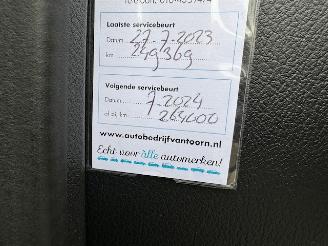 Laatste servicebeurt
Datum 27-7-2023
km 249369
Volgende servicebeurt
Datum 7-2024
of bij km 264000
www.autobedrijfvantoorn.nl
Echt voor álle automerken!